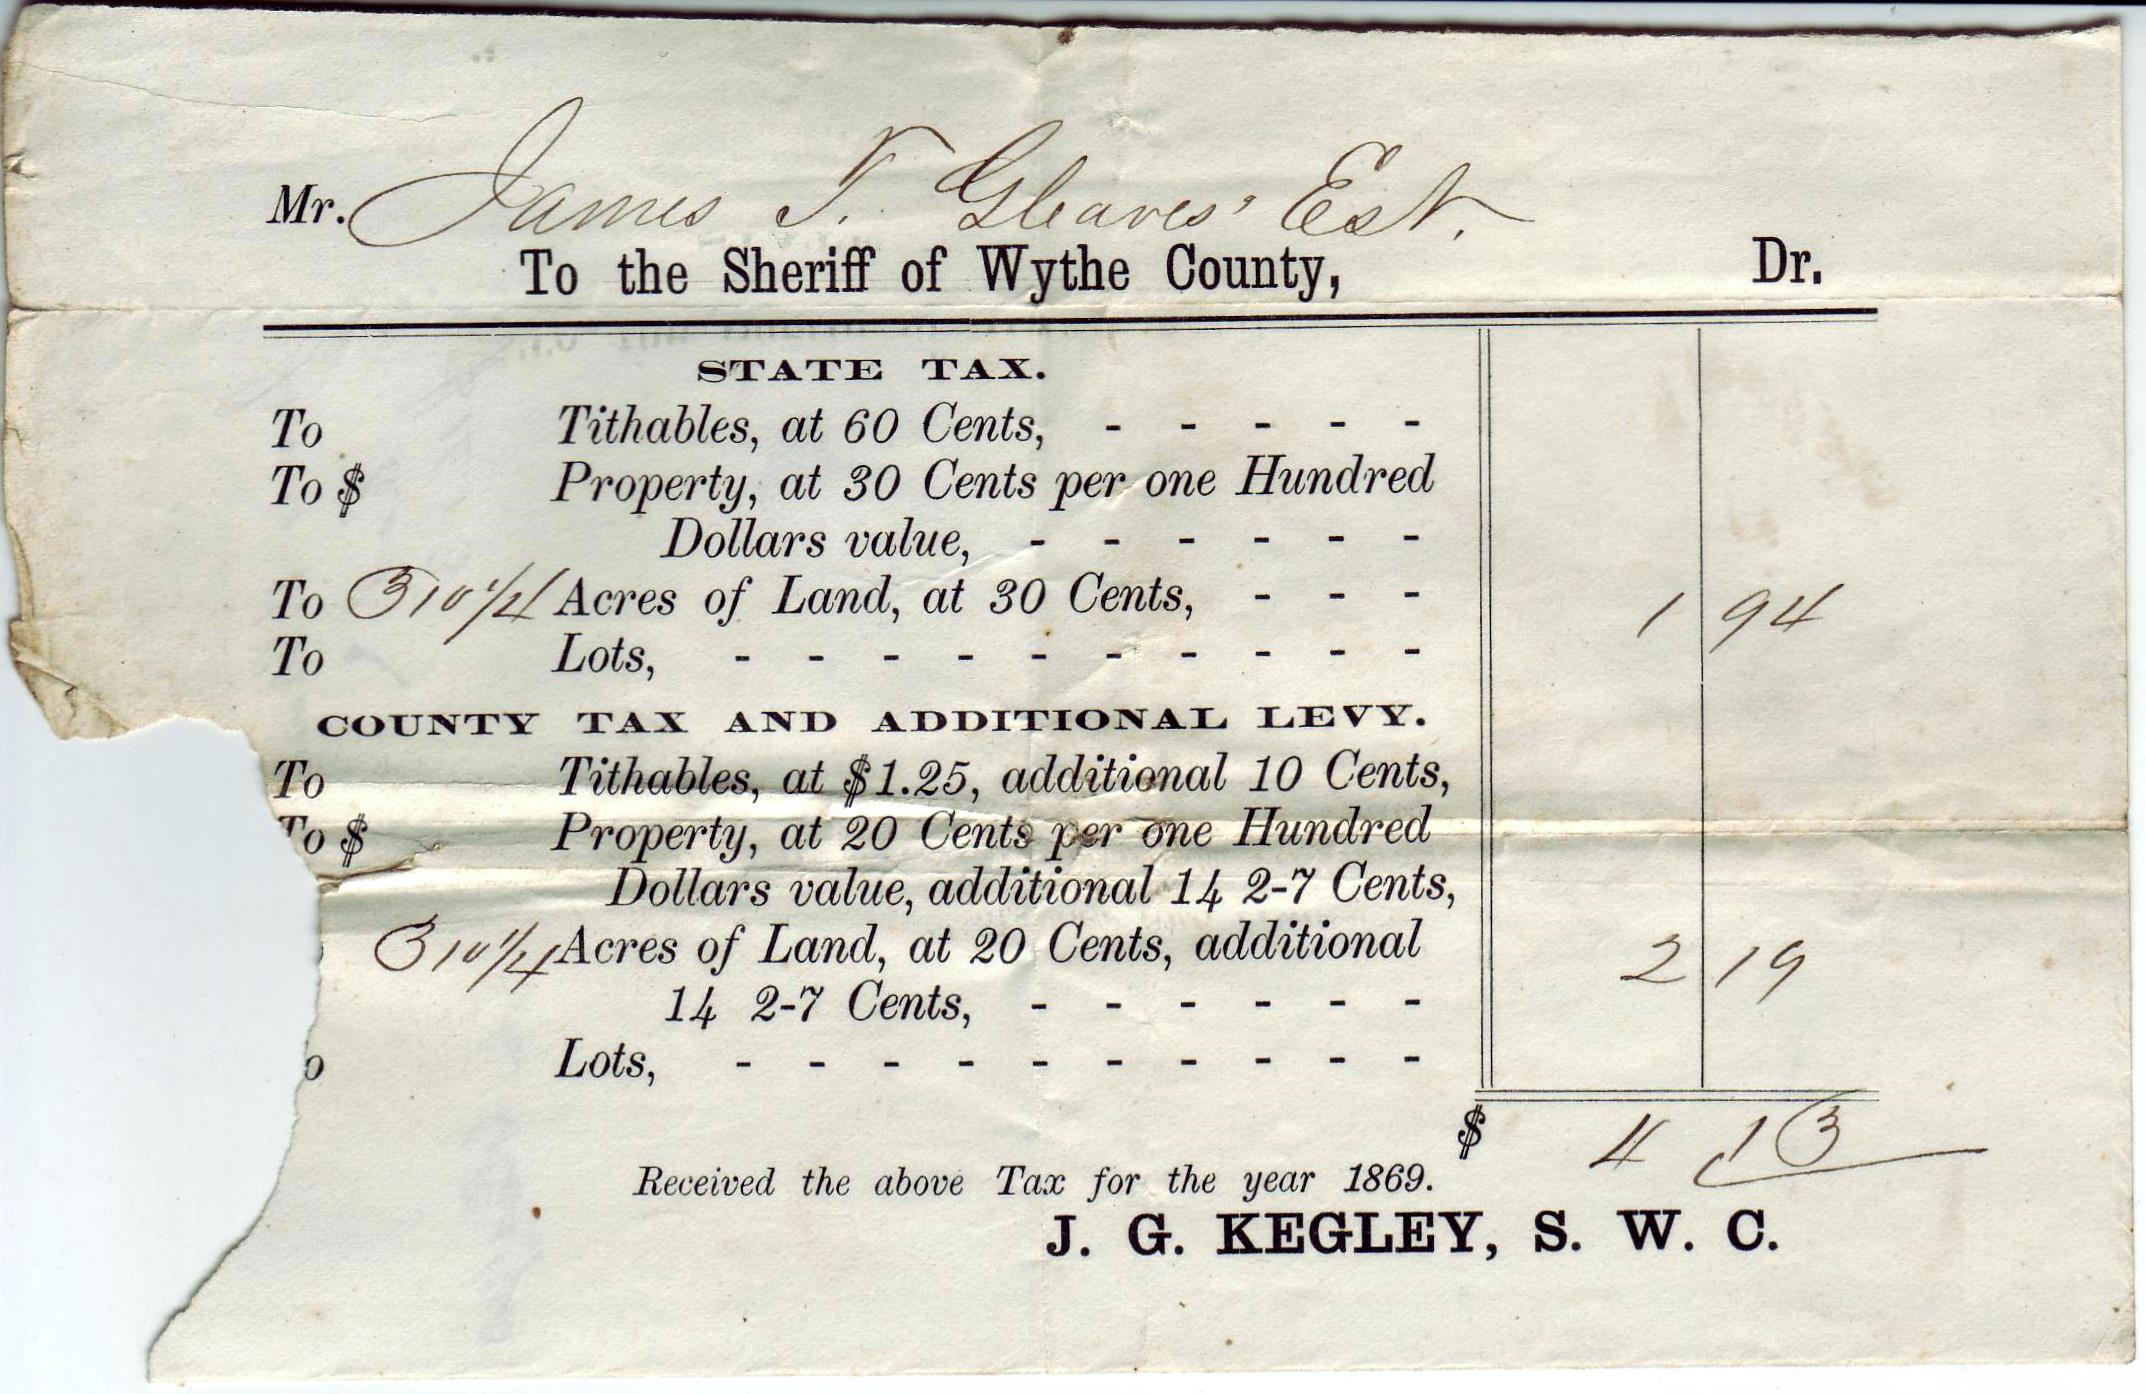 Mr. James T. Gleaves' Est.
To the Sheriff of Wythe County, Dr.
STATE TAX.
To Tithables, at 60 Cents, - - - - -
To $ Property, at 30 Cents per one Hundred
Dollars value, - - - - - -
To 310 1/4 Acres of Land, at 30 Cents, - - - 1 94
To Lots, - - - - - - - - - -
COUNTY TAX AND ADDITIONAL LEVY.
To Tithables, at $1.25, additional 10 Cents,
To $ Property, at 20 Cents per one Hundred
Dollars value, additional 14 2-7 Cents,
310 1/4 Acres of Land, at 20 Cents, additional 2 19
14 2-7 Cents, - - - - - -
o Lots, - - - - - - - - - -
$ 4 13
Received the above Tax for the year 1869.
J. G. KEGLEY, S. W. C.